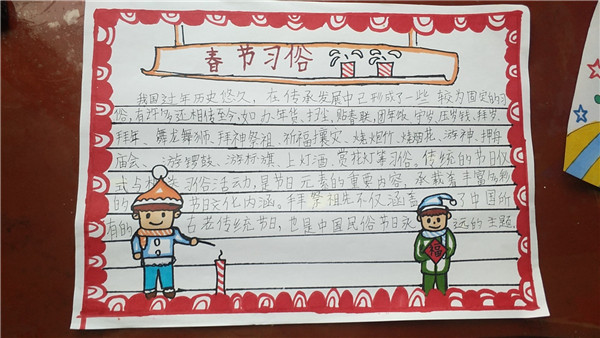 春节习俗
我国过年历史悠久，在传承发展中已形成了一些较为固定的习
俗，有许多还相传至今，如办年货、扫尘、贴春联、团年饭、守岁、压岁钱、拜岁、
拜年、舞龙舞狮、拜神祭祖、祈福攘灾、烧炮竹、烧烟花、游神、押舟
庙会、游锣鼓、游标旗、上灯酒、赏花灯等习俗。传统的节日仪
式与 习俗活动，是节日元素的重要内容，承载着丰富多彩
的节日文化内涵。拜祭祖先不仅涵盖了中国所
有的古老传统节日，也是中国民俗节日永远的主题.
福